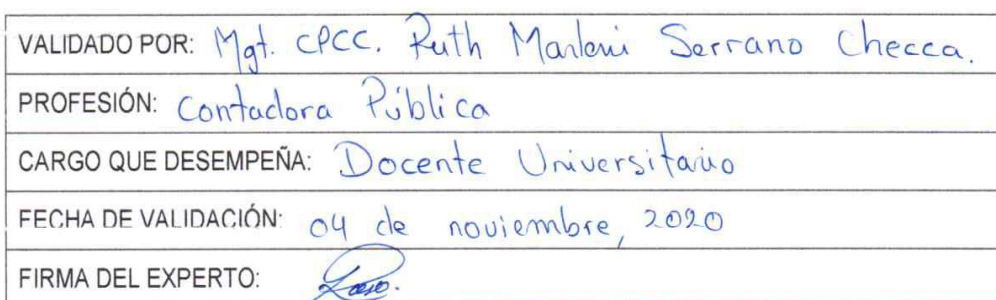 VALIDADO POR: Mgt. CPCC. Ruth Marleni Serrano Checca.
PROFESIÓN: Contadora Pública
CARGO QUE DESEMPEÑA: Docente Universitario
FECHA DE VALIDACIÓN: 04 de noviembre, 2020
FIRMA DEL EXPERTO: